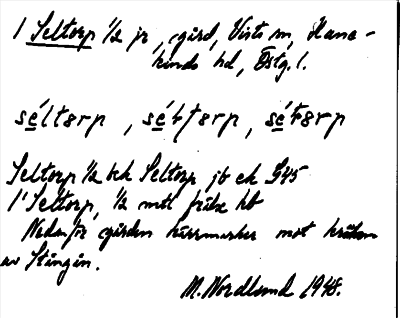 1 Seltorp 1/2 jr, gård, Vists sn, Hane-
kinds hd, Östg. l.
séltɵrp, sét̩ɵrp, sétɵrp
Seltorp 1/2 bek Seltorp jb ek S45
1 Seltorp, 1/2 mtl frälse hb
Nedanför gården kärrmarker mot kröken
av Stångån.
M. Nordlund 1948.